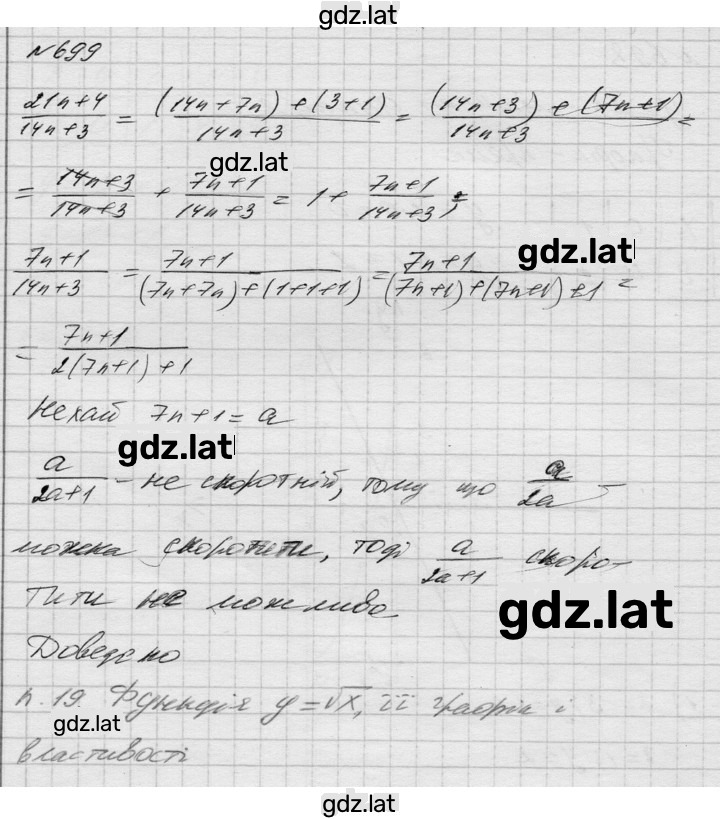 gdz.lat
№699
(21n+4)/(14n+3) = ((14n+7n)+(3+1))/(14n+3) = ((14n+3)+(7n+1))/(14n+3) =
gdz.lat
= (14n+3)/(14n+3) + (7n+1)/(14n+3) = 1 + (7n+1)/(14n+3);
gdz.lat
(7n+1)/(14n+3) = (7n+1)/((7n+7n)+(1+1+1)) = (7n+1)/((7n+1)+(7n+1)+1) =
= (7n+1)/(2(7n+1)+1)
Нехай 7n+1=a
gdz.lat
a/(2a+1) - не скоротній, тому що a/(2a) -
можна скоротити, тоді a/(2a+1) скоро-
тити не можливо
gdz.lat
Доведено
п.19. Функція y=√x, її графік і
властивості
gdz.lat